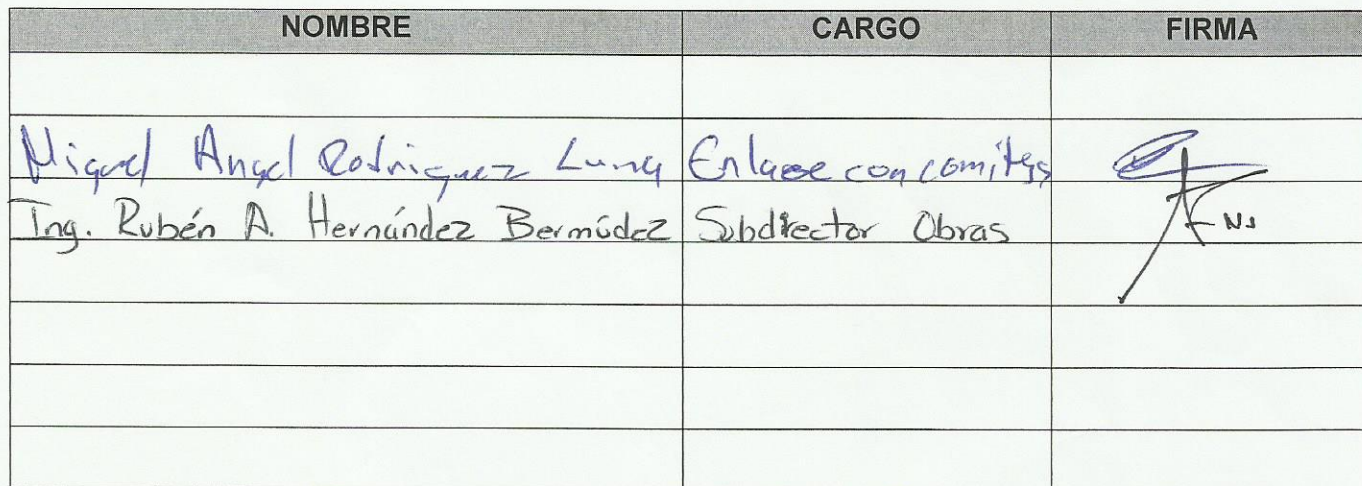 NOMBRE CARGO FIRMA
Miguel Angel Rodriguez Luna Enlase con comites
Ing. Rubén A. Hernández Bermúdez Subdirector Obras